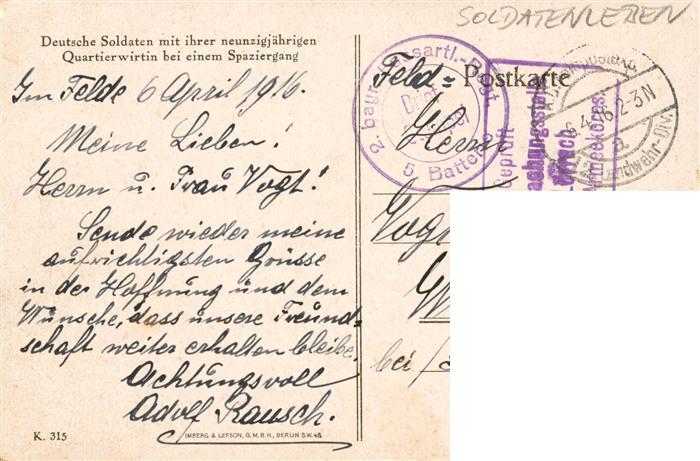 SOLDATENLEBEN
Deutsche Soldaten mit ihrer neunzigjährigen
Quartierwirtin bei einem Spaziergang
Im Felde 6 April 1916.
Meine Lieben!
Herrn u. Frau Vogt!
Sende wieder meine
aufrichtigsten Grüsse
in der Hoffnung und dem
Wunsche, dass unsere Freund=
schaft weiter erhalten bleibe.
Achtungsvoll
Adolf Rausch.
K. 315
IMBERG & LEFSON, G.M.B.H., BERLIN S.W. 48.
Feld= Postkarte
Herrn
bei
2. bayr.
5. Batterie
Geprüft
6.4.16. 2-3N
Landwehr-Div.